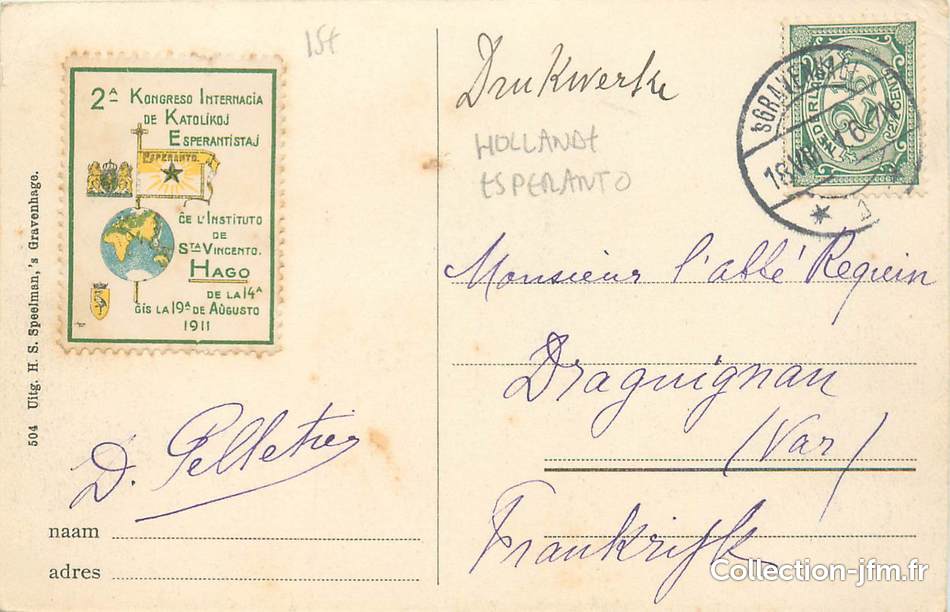 2A KONGRESO INTERNACIA
DE KATOLIKOJ
ESPERANTISTAJ
ESPERANTO.
ĈE L'INSTITUTO
DE
STA VINCENTO.
HAGO
DE LA 14A
ĜIS LA 19A DE AŬGUSTO
1911
504 Uitg. H. S. Speelman, 's Gravenhage.
D. Pelletier
naam
adres
15f
Drukwerk
HOLLANDE
ESPERANTO
'SGRAVENHAGE
18.VIII
NEDERLAND
2½ CENT
Monsieur l'abbé Requin
Draguignan
(Var)
Frankrijk
Collection-jfm.fr